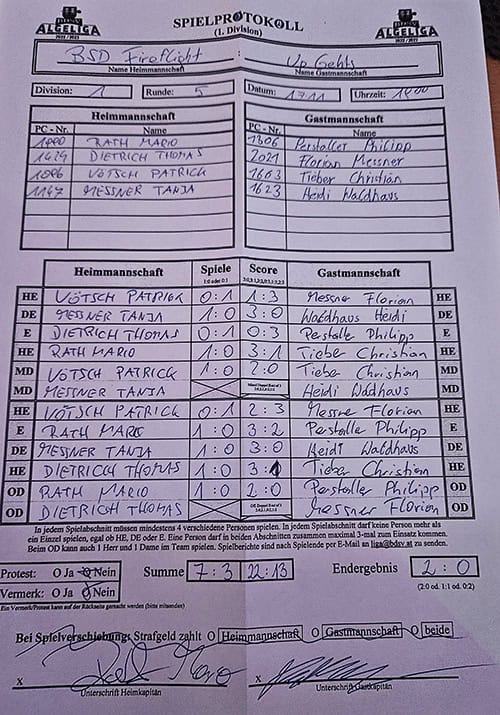 ALGELIGA SPIELPROTOKOLL ALGELIGA
2022 / 2023 (1. Division) 2022 / 2023
BSD Fireflight : Up Gehts
Name Heimmannschaft Name Gastmannschaft
Division: 1 Runde: 5 Datum: 17.11 Uhrzeit:
Heimmannschaft Gastmannschaft
PC - Nr. Name PC - Nr. Name
RATH MARIO 1306 Perstaller Philipp
1429 DIETRICH THOMAS 2021 Florian Messner
1086 VÖTSCH PATRICK 1603 Tieber Christian
1147 MESSNER TANJA 1623 Heidi Waldhaus
Heimmannschaft Spiele Score Gastmannschaft
1:0 oder 0:1
HE VÖTSCH PATRICK 0:1 1:3 Messner Florian HE
DE MESSNER TANJA 1:0 3:0 Waldhaus Heidi DE
E DIETRICH THOMAS 0:1 0:3 Perstaller Philipp E
HE RATH MARIO 1:0 3:1 Tieber Christian HE
MD VÖTSCH PATRICK 1:0 2:0 Tieber Christian MD
MD MESSNER TANJA Heidi Waldhaus MD
HE VÖTSCH PATRICK 0:1 2:3 Messner Florian HE
E RATH MARIO 1:0 3:2 Perstaller Philipp E
DE MESSNER TANJA 1:0 3:0 Heidi Waldhaus DE
HE DIETRICH THOMAS 1:0 3:1 Tieber Christian HE
OD RATH MARIO 1:0 2:0 Perstaller Philipp OD
OD DIETRICH THOMAS Messner Florian OD
In jedem Spielabschnitt müssen mindestens 4 verschiedene Personen spielen. In jedem Spielabschnitt darf keine Person mehr als
ein Einzel spielen, egal ob HE, DE oder E. Eine Person darf in beiden Abschnitten zusammen maximal 3-mal zum Einsatz kommen.
Beim OD kann auch 1 Herr und 1 Dame im Team spielen. Spielberichte sind nach Spielende per E-Mail an liga@bdsv.at zu senden.
Protest: O Ja O Nein Summe 7:3 22:13 Endergebnis 2:0
Vermerk: O Ja O Nein (2:0 od. 1:1 od. 0:2)
Ein Vermerk/Protest kann auf der Rückseite gemacht werden (bitte mitsenden)
Bei Spielverschiebung: Strafgeld zahlt O Heimmannschaft O Gastmannschaft O beide
X X
Unterschrift Heimkapitän Unterschrift Gastkapitän